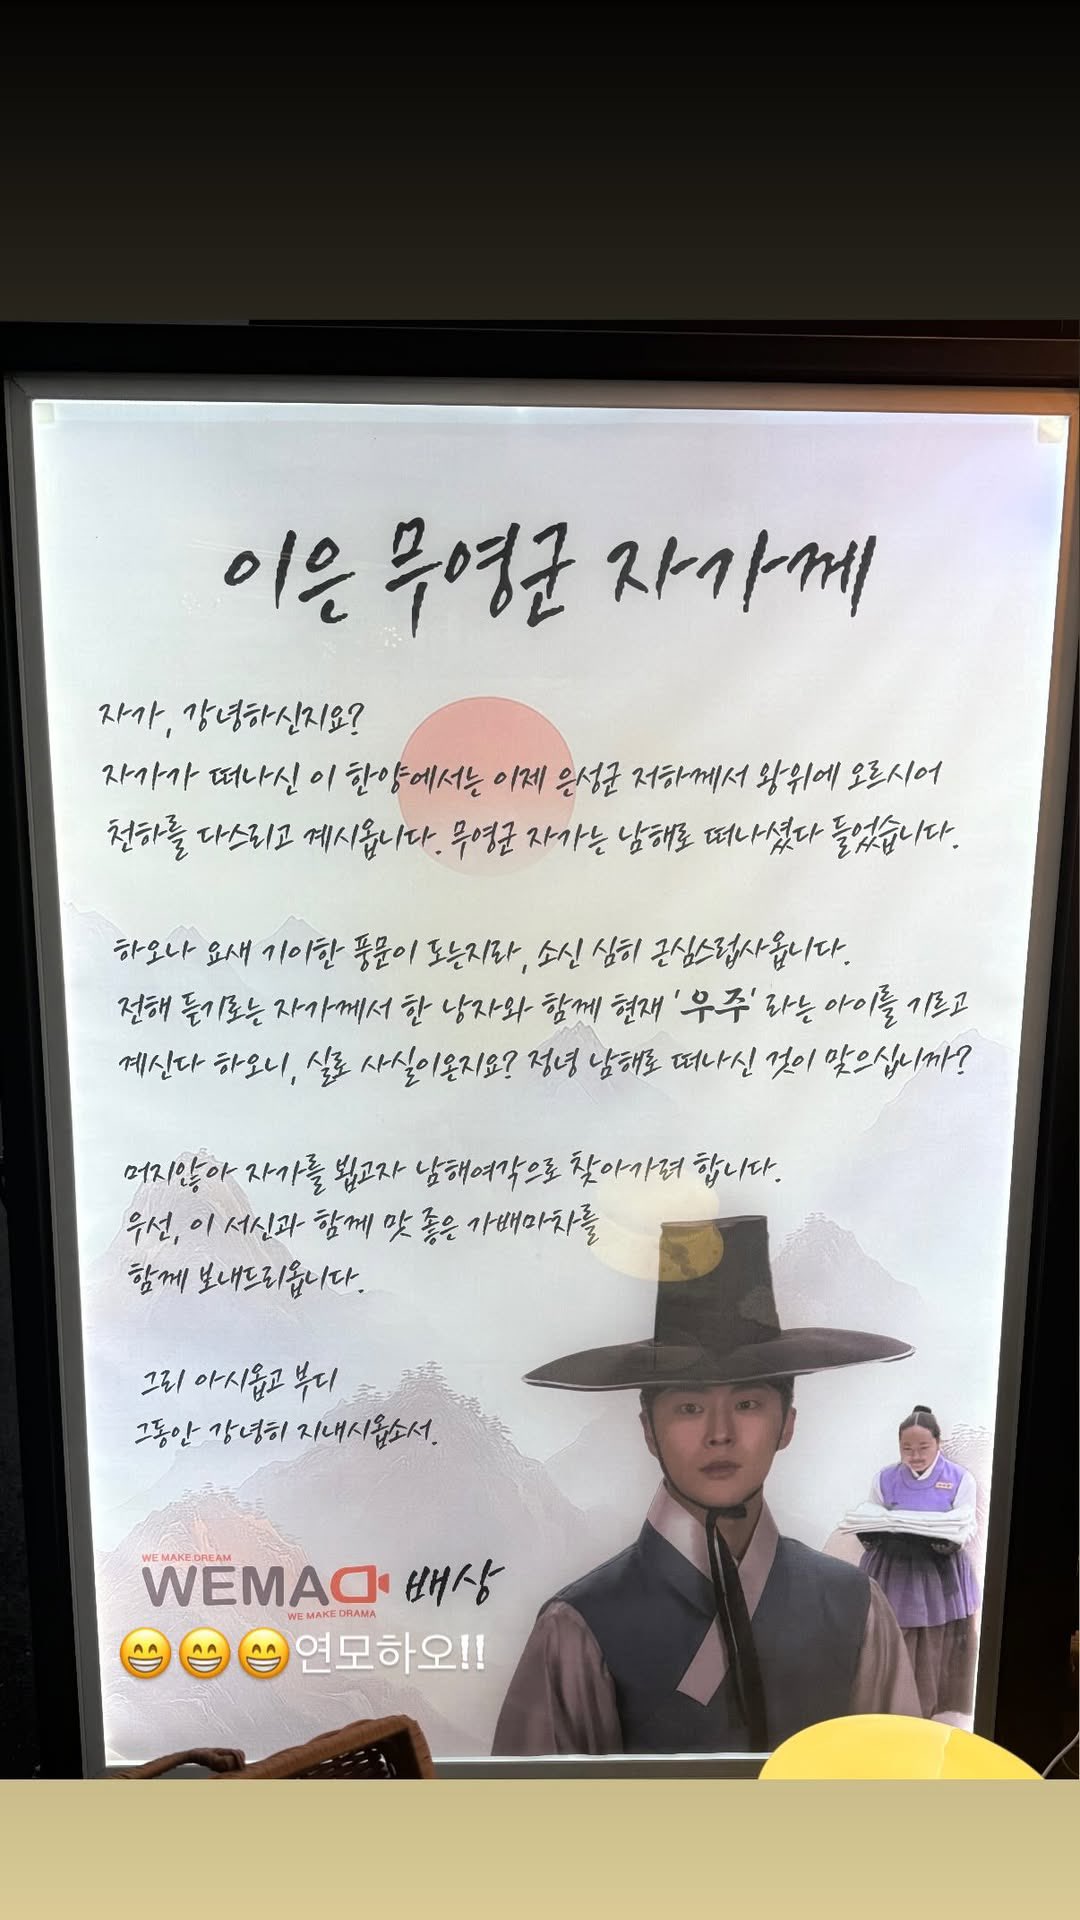 이은 무영군 자가께
자가, 강녕하신지요?
자가가 떠나신 이 한양에서는 이제 은성군 저하께서 왕위에 오르시어
천하를 다스리고 계시옵니다. 무영군 자가는 남해로 떠나셨다 들었습니다.
하오나 요새 기이한 풍문이 도는지라, 소신 심히 근심스럽사옵니다.
전해 듣기로는 자가께서 한 낭자와 함께 현재 '우주' 라는 아이를 기르고
계신다 하오니, 실로 사실이온지요? 정녕 남해로 떠나신 것이 맞으십니까?
머지않아 자가를 뵙고자 남해여각으로 찾아가려 합니다.
우선, 이 서신과 함께 맛 좋은 가배마차를
함께 보내드리옵니다.
그리 아시옵고 부디
그동안 강녕히 지내시옵소서.
WE MAKE DREAM
WEMAD 배상
WE MAKE DRAMA
😁😁😁연모하오!!